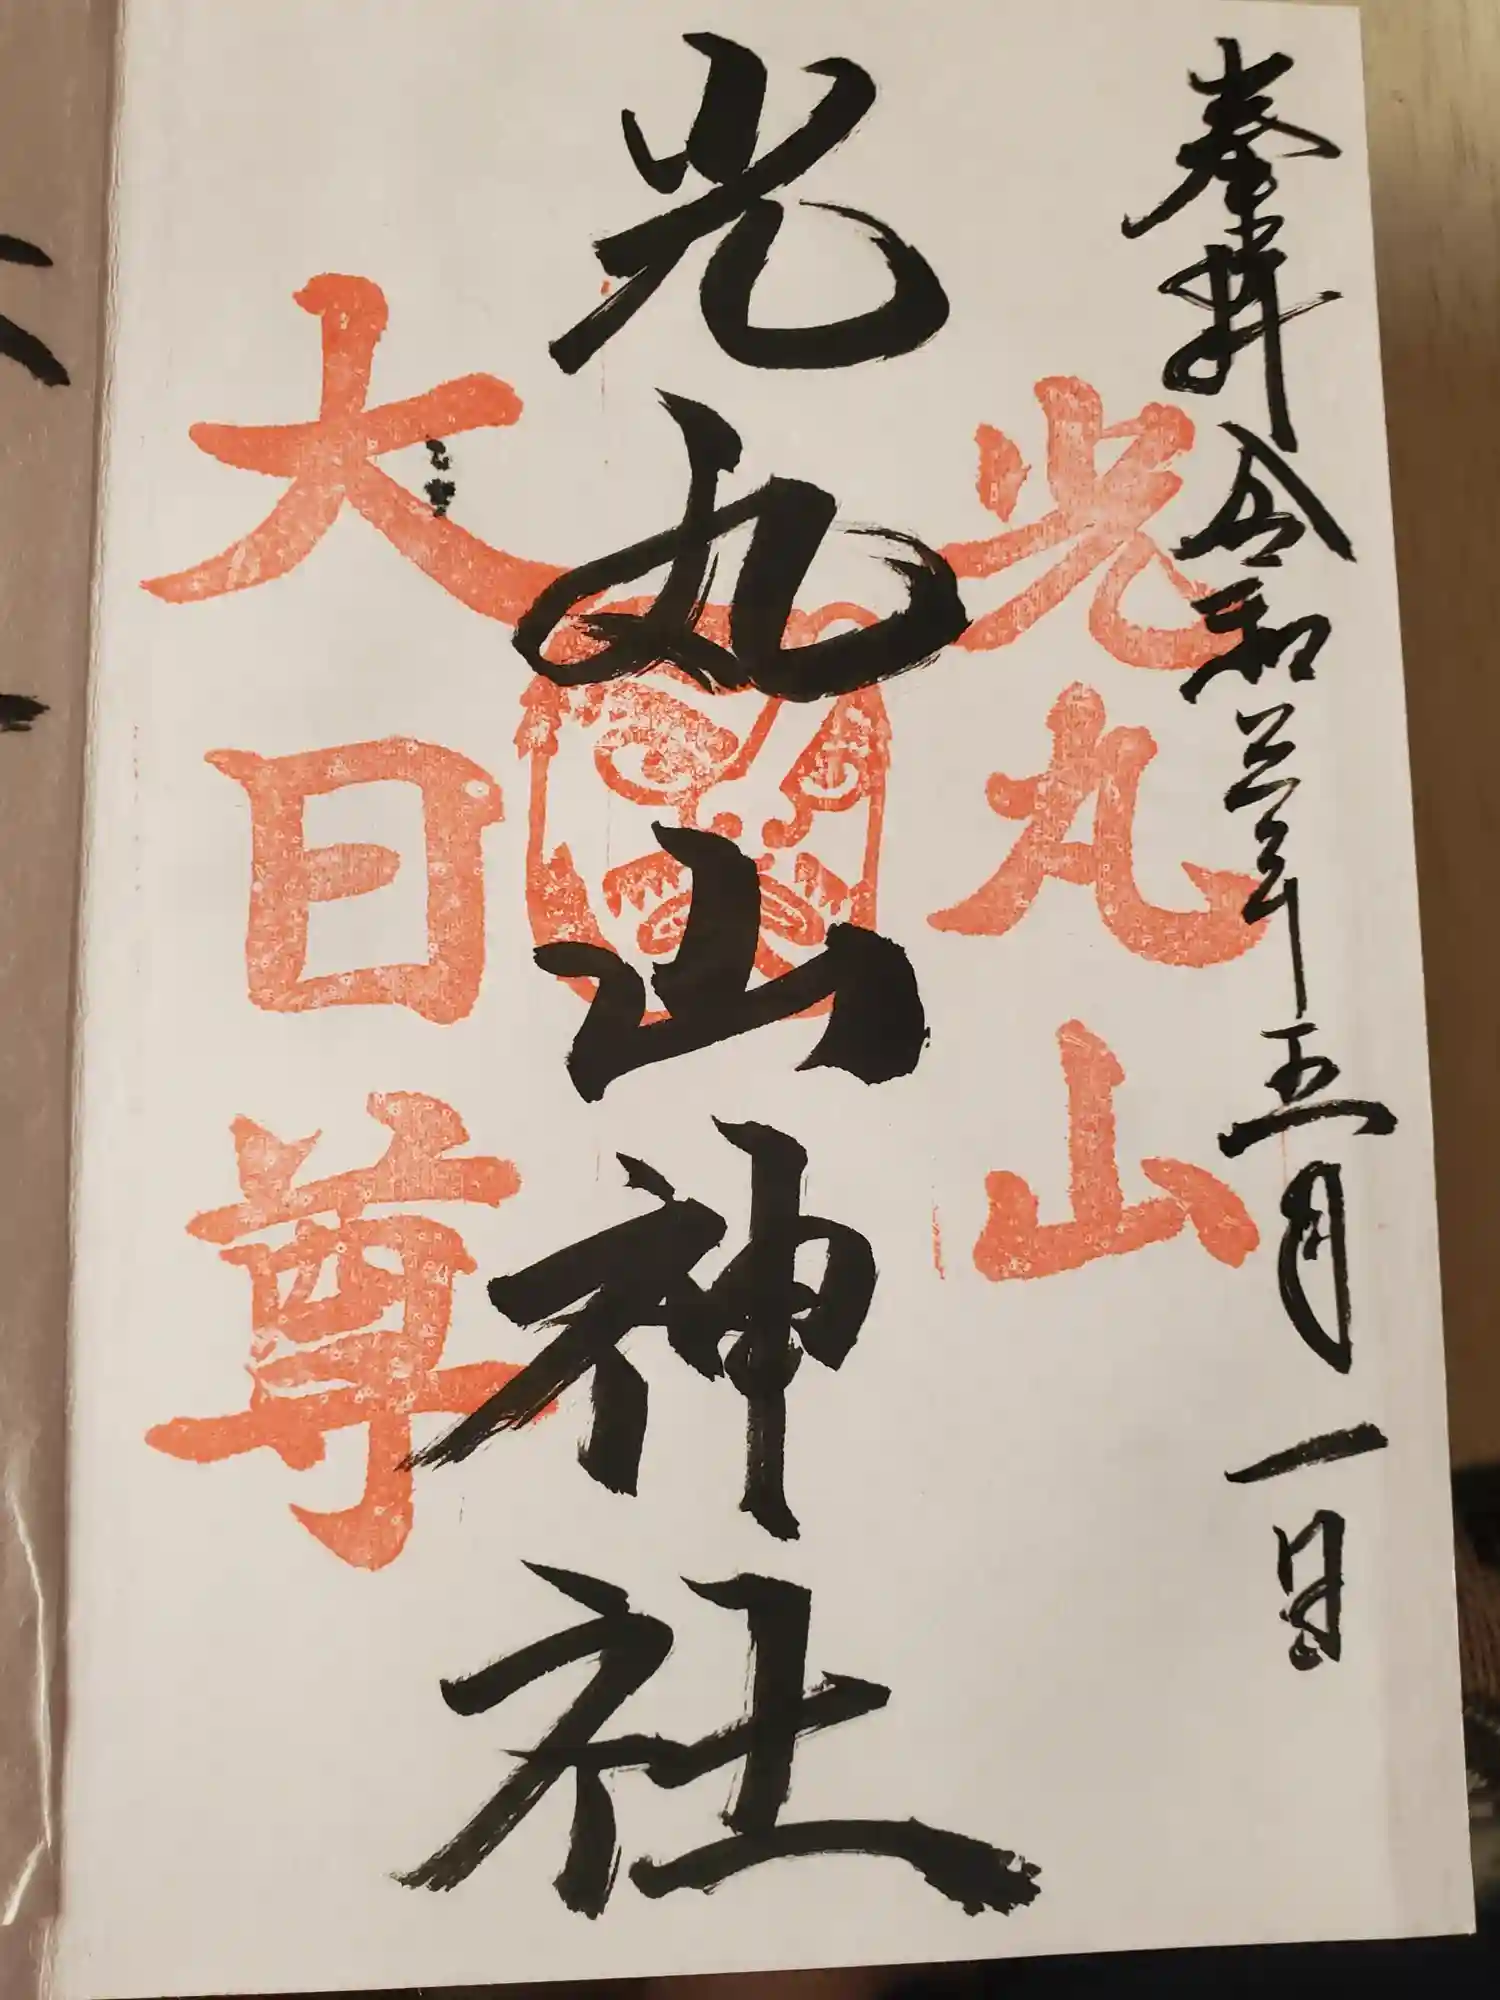 奉拝 令和三年五月一日
光丸山
光丸山神社
大日尊